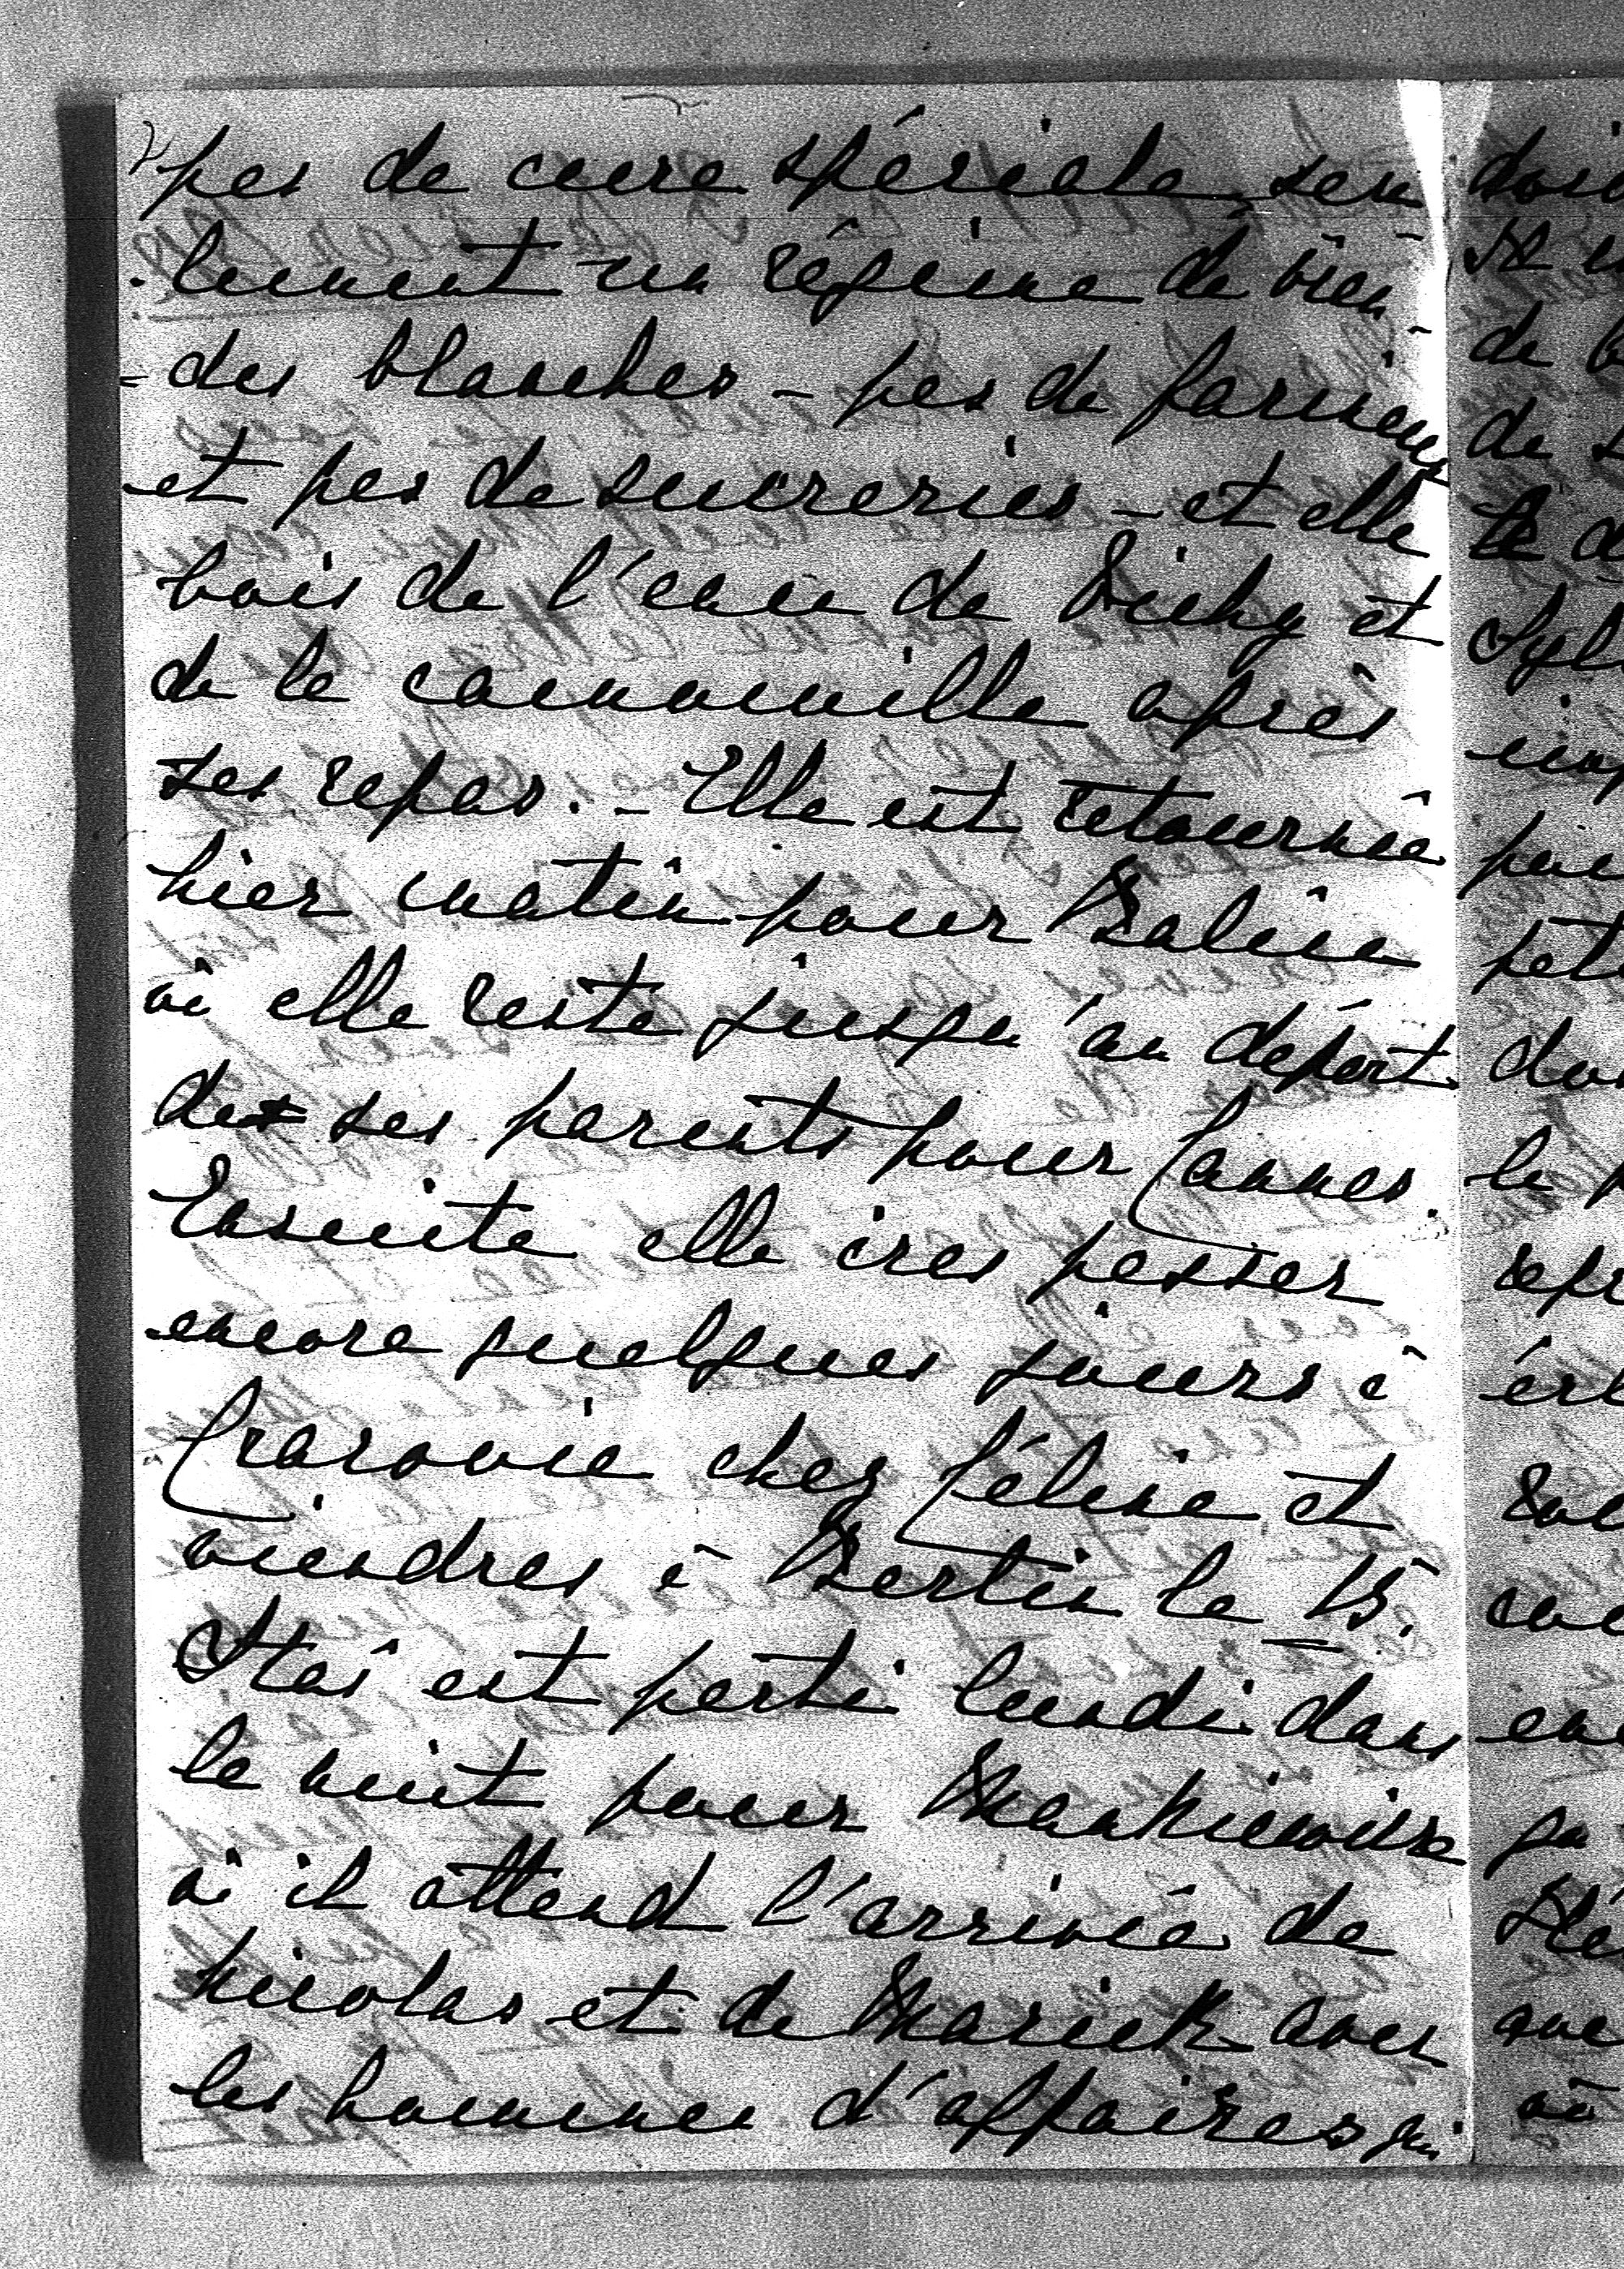 2
pas de cure spéciale, seu
-lement un régime de vian-
-des blanches - pas de farineux
et pas de sucreries - et elle
bois de l'eau de Vichy et
de la camomille après
ses repas. - Elle est retournée
hier matin pour
où elle reste jusqu'au départ
de ses parents pour Cannes.
Ensuite elle iras passer
encore quelques jours à
Cracovie chez Céline et
viendras à Berlin le 15.
Staś est parti lundi dans
la nuit pour Mankiewicze
où il attend l'arrivée de
Nicolas et de avec
les hommes d'affaires qui